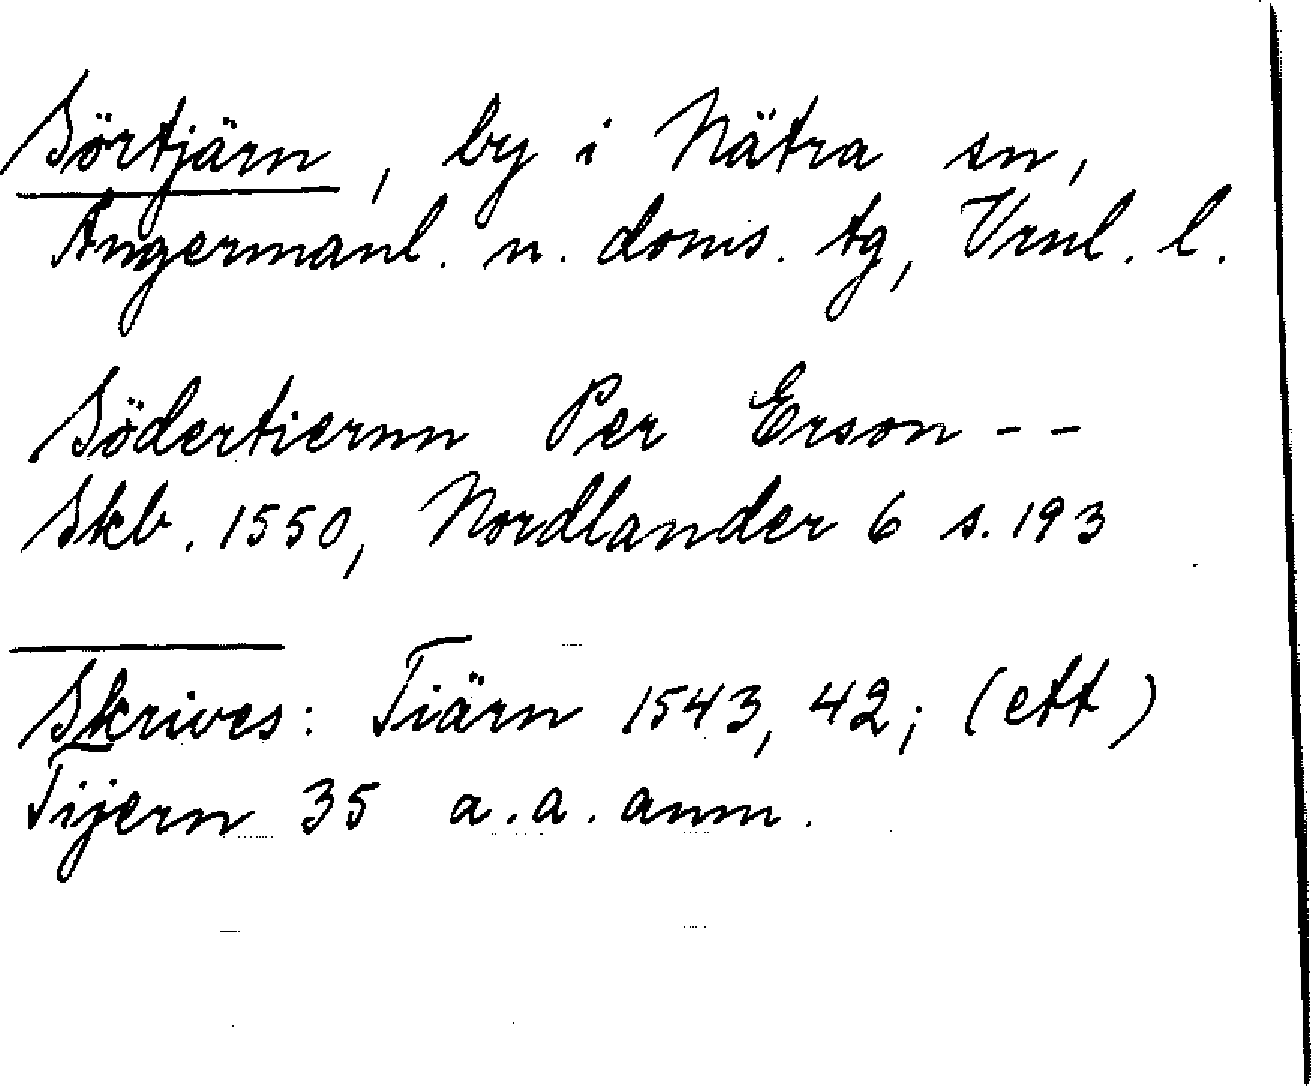 Sörtjärn, by i Nätra sn,
Ångermanl. n. doms. tg, Vrnl. l.
Södertiernn Per Erson - -
Skb. 1550, Nordlander 6 s. 193
Skrives: Tiärn 1543, 42; (ett)
Tijern 35 a. a. anm.